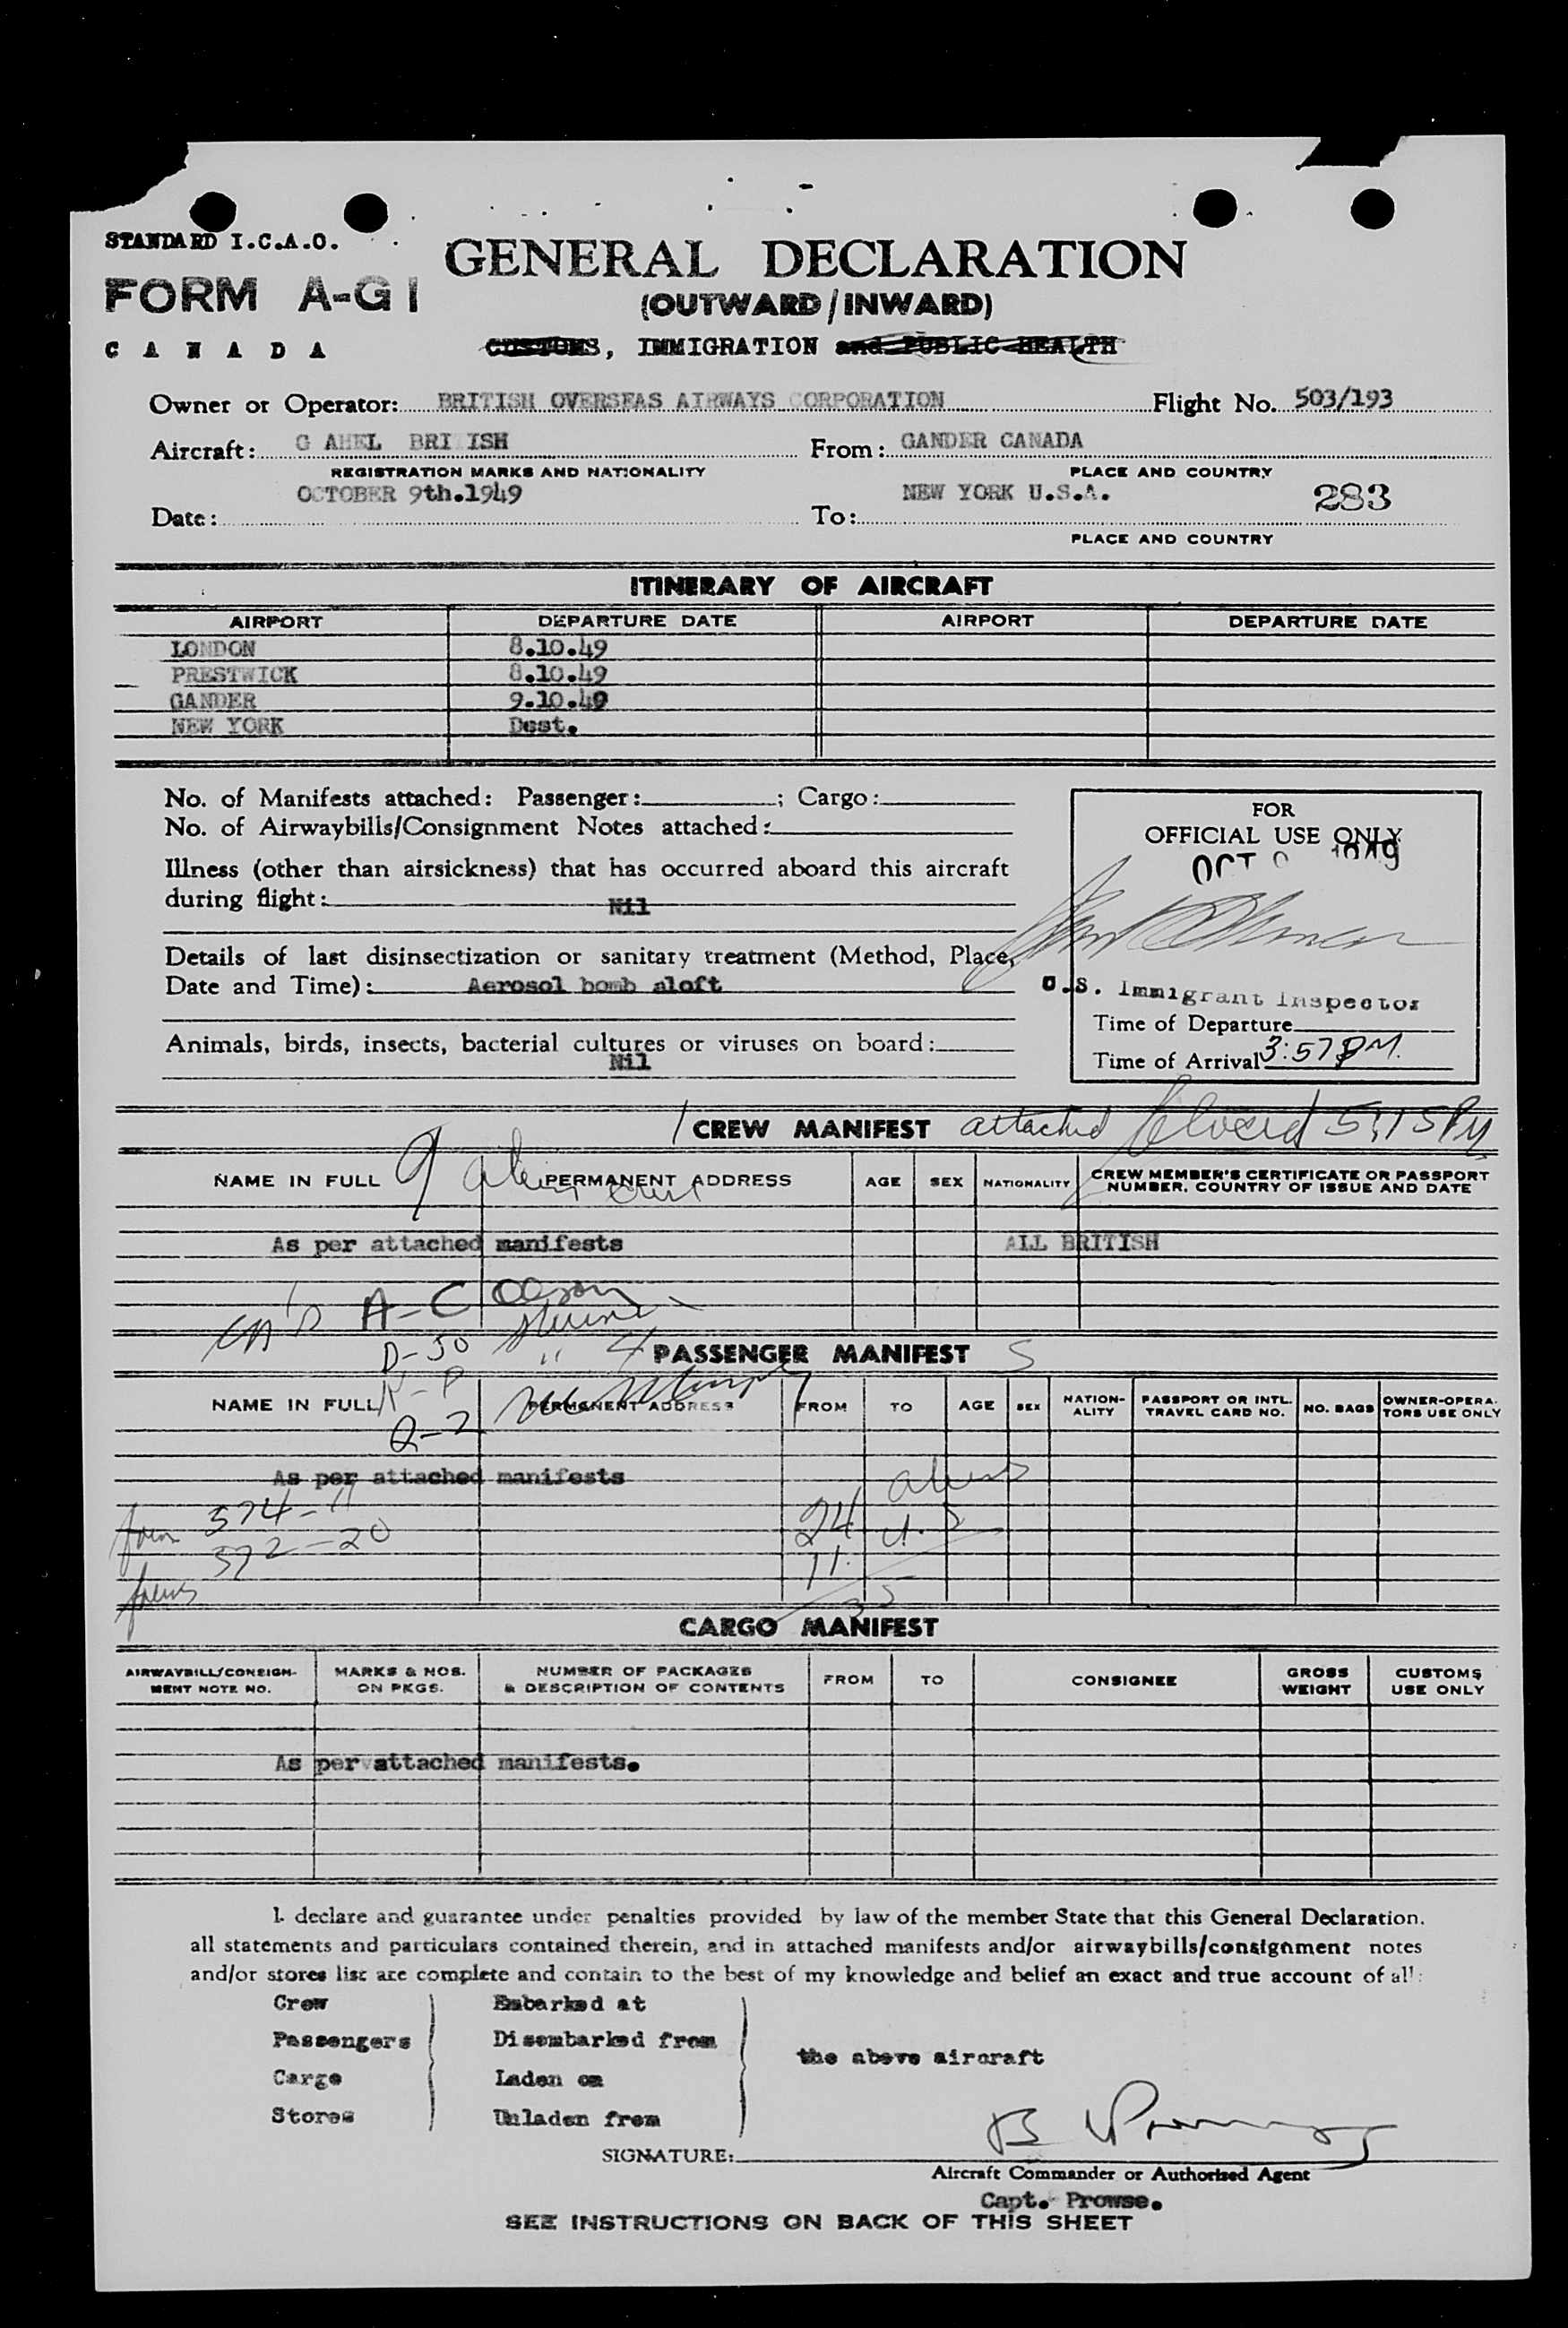 STANDARD I.C.A.O.
FORM A-G1
CANADA
GENERAL DECLARATION
(OUTWARD/INWARD)
CUSTOMS, IMMIGRATION and PUBLIC HEALTH
Owner or Operator: BRITISH OVERSEAS AIRWAYS CORPORATION Flight No. 503/193
Aircraft: G AHEL BRI ISH From: GANDER CANADA
REGISTRATION MARKS AND NATIONALITY PLACE AND COUNTRY
Date: OCTOBER 9th.1949 To: NEW YORK U.S.A. 283
PLACE AND COUNTRY
ITINERARY OF AIRCRAFT
AIRPORT DEPARTURE DATE AIRPORT DEPARTURE DATE
LONDON 8.10.49
PRESTWICK 8.10.49
GANDER 9.10.49
NEW YORK Dest.
No. of Manifests attached: Passenger: ; Cargo:
No. of Airwaybills/Consignment Notes attached:
Illness (other than airsickness) that has occurred aboard this aircraft
during flight: Nil
Details of last disinsectization or sanitary treatment (Method, Place,
Date and Time): Aerosol bomb aloft
Animals, birds, insects, bacterial cultures or viruses on board:
Nil
FOR
OFFICIAL USE ONLY
OCT 1949
U.S. Immigrant Inspector
Time of Departure
Time of Arrival 3:57 PM.
1 CREW MANIFEST attached Closed 5:15 PM
9 alien crew
NAME IN FULL PERMANENT ADDRESS AGE SEX NATIONALITY CREW MEMBER'S CERTIFICATE OR PASSPORT
NUMBER, COUNTRY OF ISSUE AND DATE
As per attached manifests ALL BRITISH
A-C
D-J
PASSENGER MANIFEST 5
K-P
NAME IN FULL PERMANENT ADDRESS FROM TO AGE SEX NATION-
ALITY PASSPORT OR INTL.
TRAVEL CARD NO. NO. BAGS OWNER-OPERA-
TORS USE ONLY
Q-Z
As per attached manifests
574-11 24 aliens
572-20 11 U.S
35
CARGO MANIFEST
AIRWAYBILL/CONSIGN-
MENT NOTE NO. MARKS & NOS.
ON PKGS. NUMBER OF PACKAGES
& DESCRIPTION OF CONTENTS FROM TO CONSIGNEE GROSS
WEIGHT CUSTOMS
USE ONLY
As per attached manifests.
I declare and guarantee under penalties provided by law of the member State that this General Declaration,
all statements and particulars contained therein, and in attached manifests and/or airwaybills/consignment notes
and/or stores list are complete and contain to the best of my knowledge and belief an exact and true account of all:
Crew Embarked at
Passengers Disembarked from
the above aircraft
Cargo Laden on
Stores Unladen from
SIGNATURE: B Prowse
Aircraft Commander or Authorized Agent
Capt. Prowse.
SEE INSTRUCTIONS ON BACK OF THIS SHEET